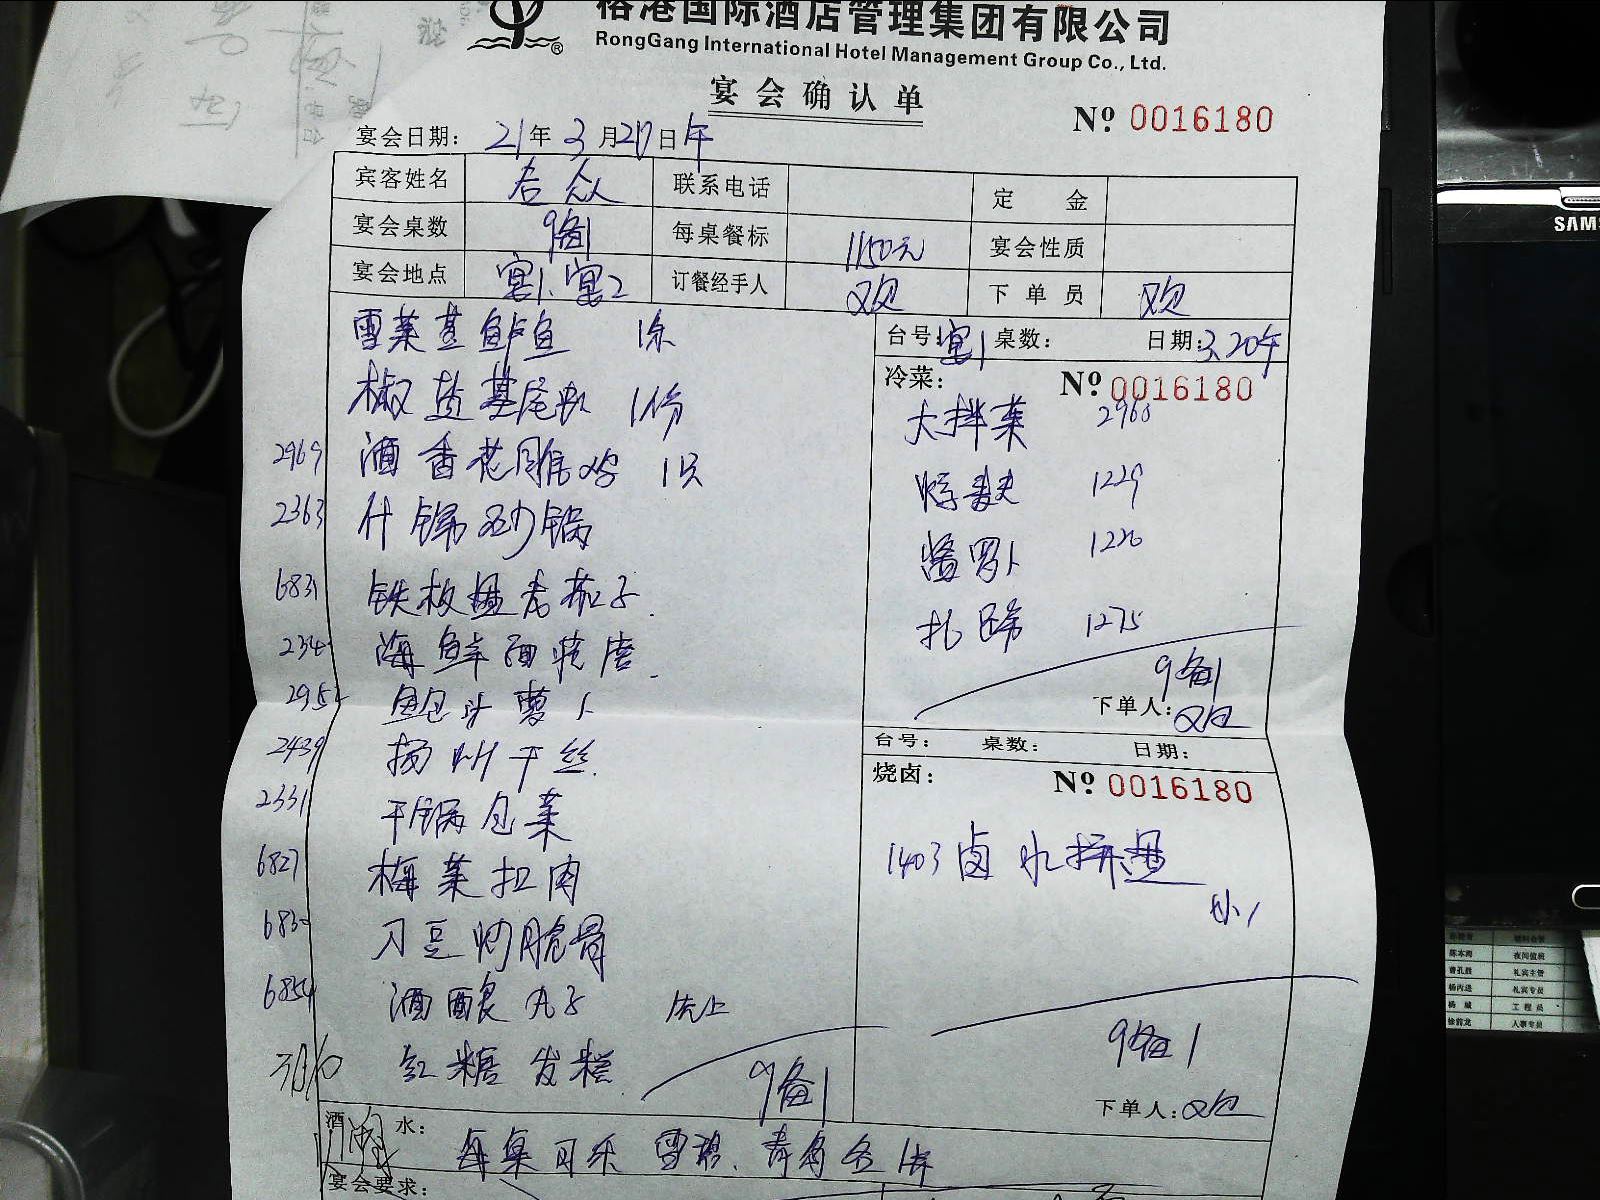 榕港国际酒店管理集团有限公司
RongGang International Hotel Management Group Co., Ltd.
宴会确认单
Nº 0016180
宴会日期: 21年3月20日午
宾客姓名 联系电话 定金
宴会桌数 9备1 每桌餐标 1150元 宴会性质
宴会地点 宴1、宴2 订餐经手人 欢 下单员 欢
雪菜蒸鲈鱼 1条
椒盐基尾虾 1份
2969 酒香花雕鸡 1只
2363 什锦砂锅
6831 铁板盘龙茄子
234 海鲜面疙瘩
295 鲍汁萝卜
2439 扬州干丝
2331 干锅包菜
6827 梅菜扣肉
683 刀豆炒脆骨
6854 酒酿丸子 先上
红糖发糕
9备1
台号: 宴1 桌数: 日期: 3.20午
冷菜: Nº 0016180
大拌菜 2960
烤麸 1229
酱萝卜 1220
扎蹄 1275
9备1
下单人: 欢
台号: 桌数: 日期:
烧卤: Nº 0016180
1403 卤水拼盘
小1
9备1
下单人: 欢
酒水: 每桌可乐 雪碧、青岛各1瓶
宴会要求:
SAMS
夜间值班
礼宾主管
礼宾专员
工程员
人事专员